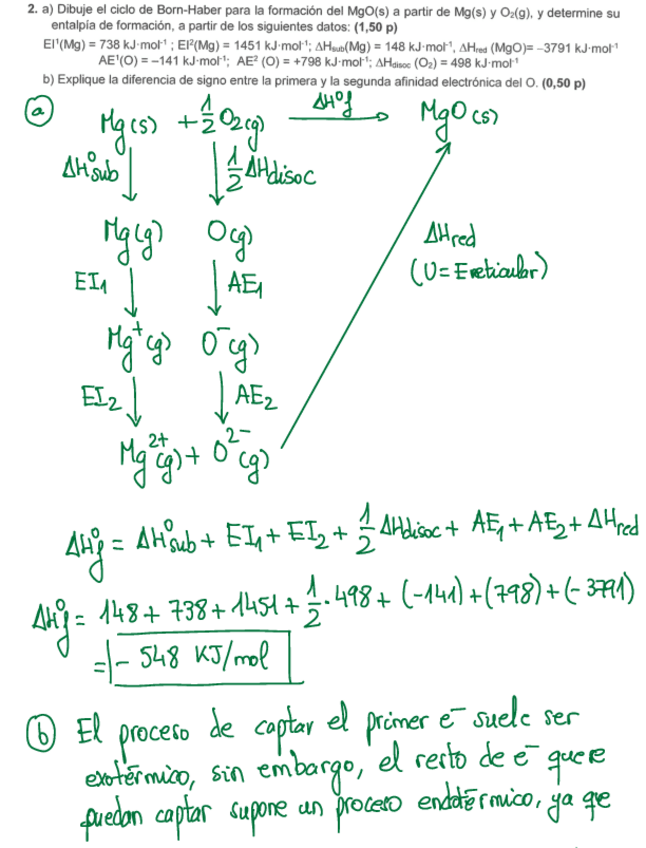 2. a) Dibuje el ciclo de Born-Haber para la formación del MgO(s) a partir de Mg(s) y O₂(g), y determine su
entalpía de formación, a partir de los siguientes datos: (1,50 p)
EI¹(Mg) = 738 kJ·mol⁻¹ ; EI²(Mg) = 1451 kJ·mol⁻¹; ΔHsub(Mg) = 148 kJ·mol⁻¹, ΔHred (MgO)= −3791 kJ·mol⁻¹
AE¹(O) = −141 kJ·mol⁻¹; AE² (O) = +798 kJ·mol⁻¹; ΔHdisoc (O₂) = 498 kJ·mol⁻¹
b) Explique la diferencia de signo entre la primera y la segunda afinidad electrónica del O. (0,50 p)
a
Mg(s) + 1/2 O₂(g) ΔH⁰f MgO(s)
ΔH⁰sub 1/2 ΔHdisoc
Mg(g) O(g) ΔHred
(U=Ereticular)
EI₁ AE₁
Mg⁺(g) O⁻(g)
EI₂ AE₂
Mg²⁺(g) + O²⁻(g)
ΔH⁰f = ΔH⁰sub + EI₁ + EI₂ + 1/2 ΔHdisoc + AE₁ + AE₂ + ΔHred
ΔH⁰f = 148 + 738 + 1451 + 1/2 · 498 + (-141) + (798) + (-3791)
= - 548 KJ/mol
b El proceso de captar el primer e⁻ suele ser
exotérmico, sin embargo, el resto de e⁻ que se
puedan captar supone un proceso endotérmico, ya que